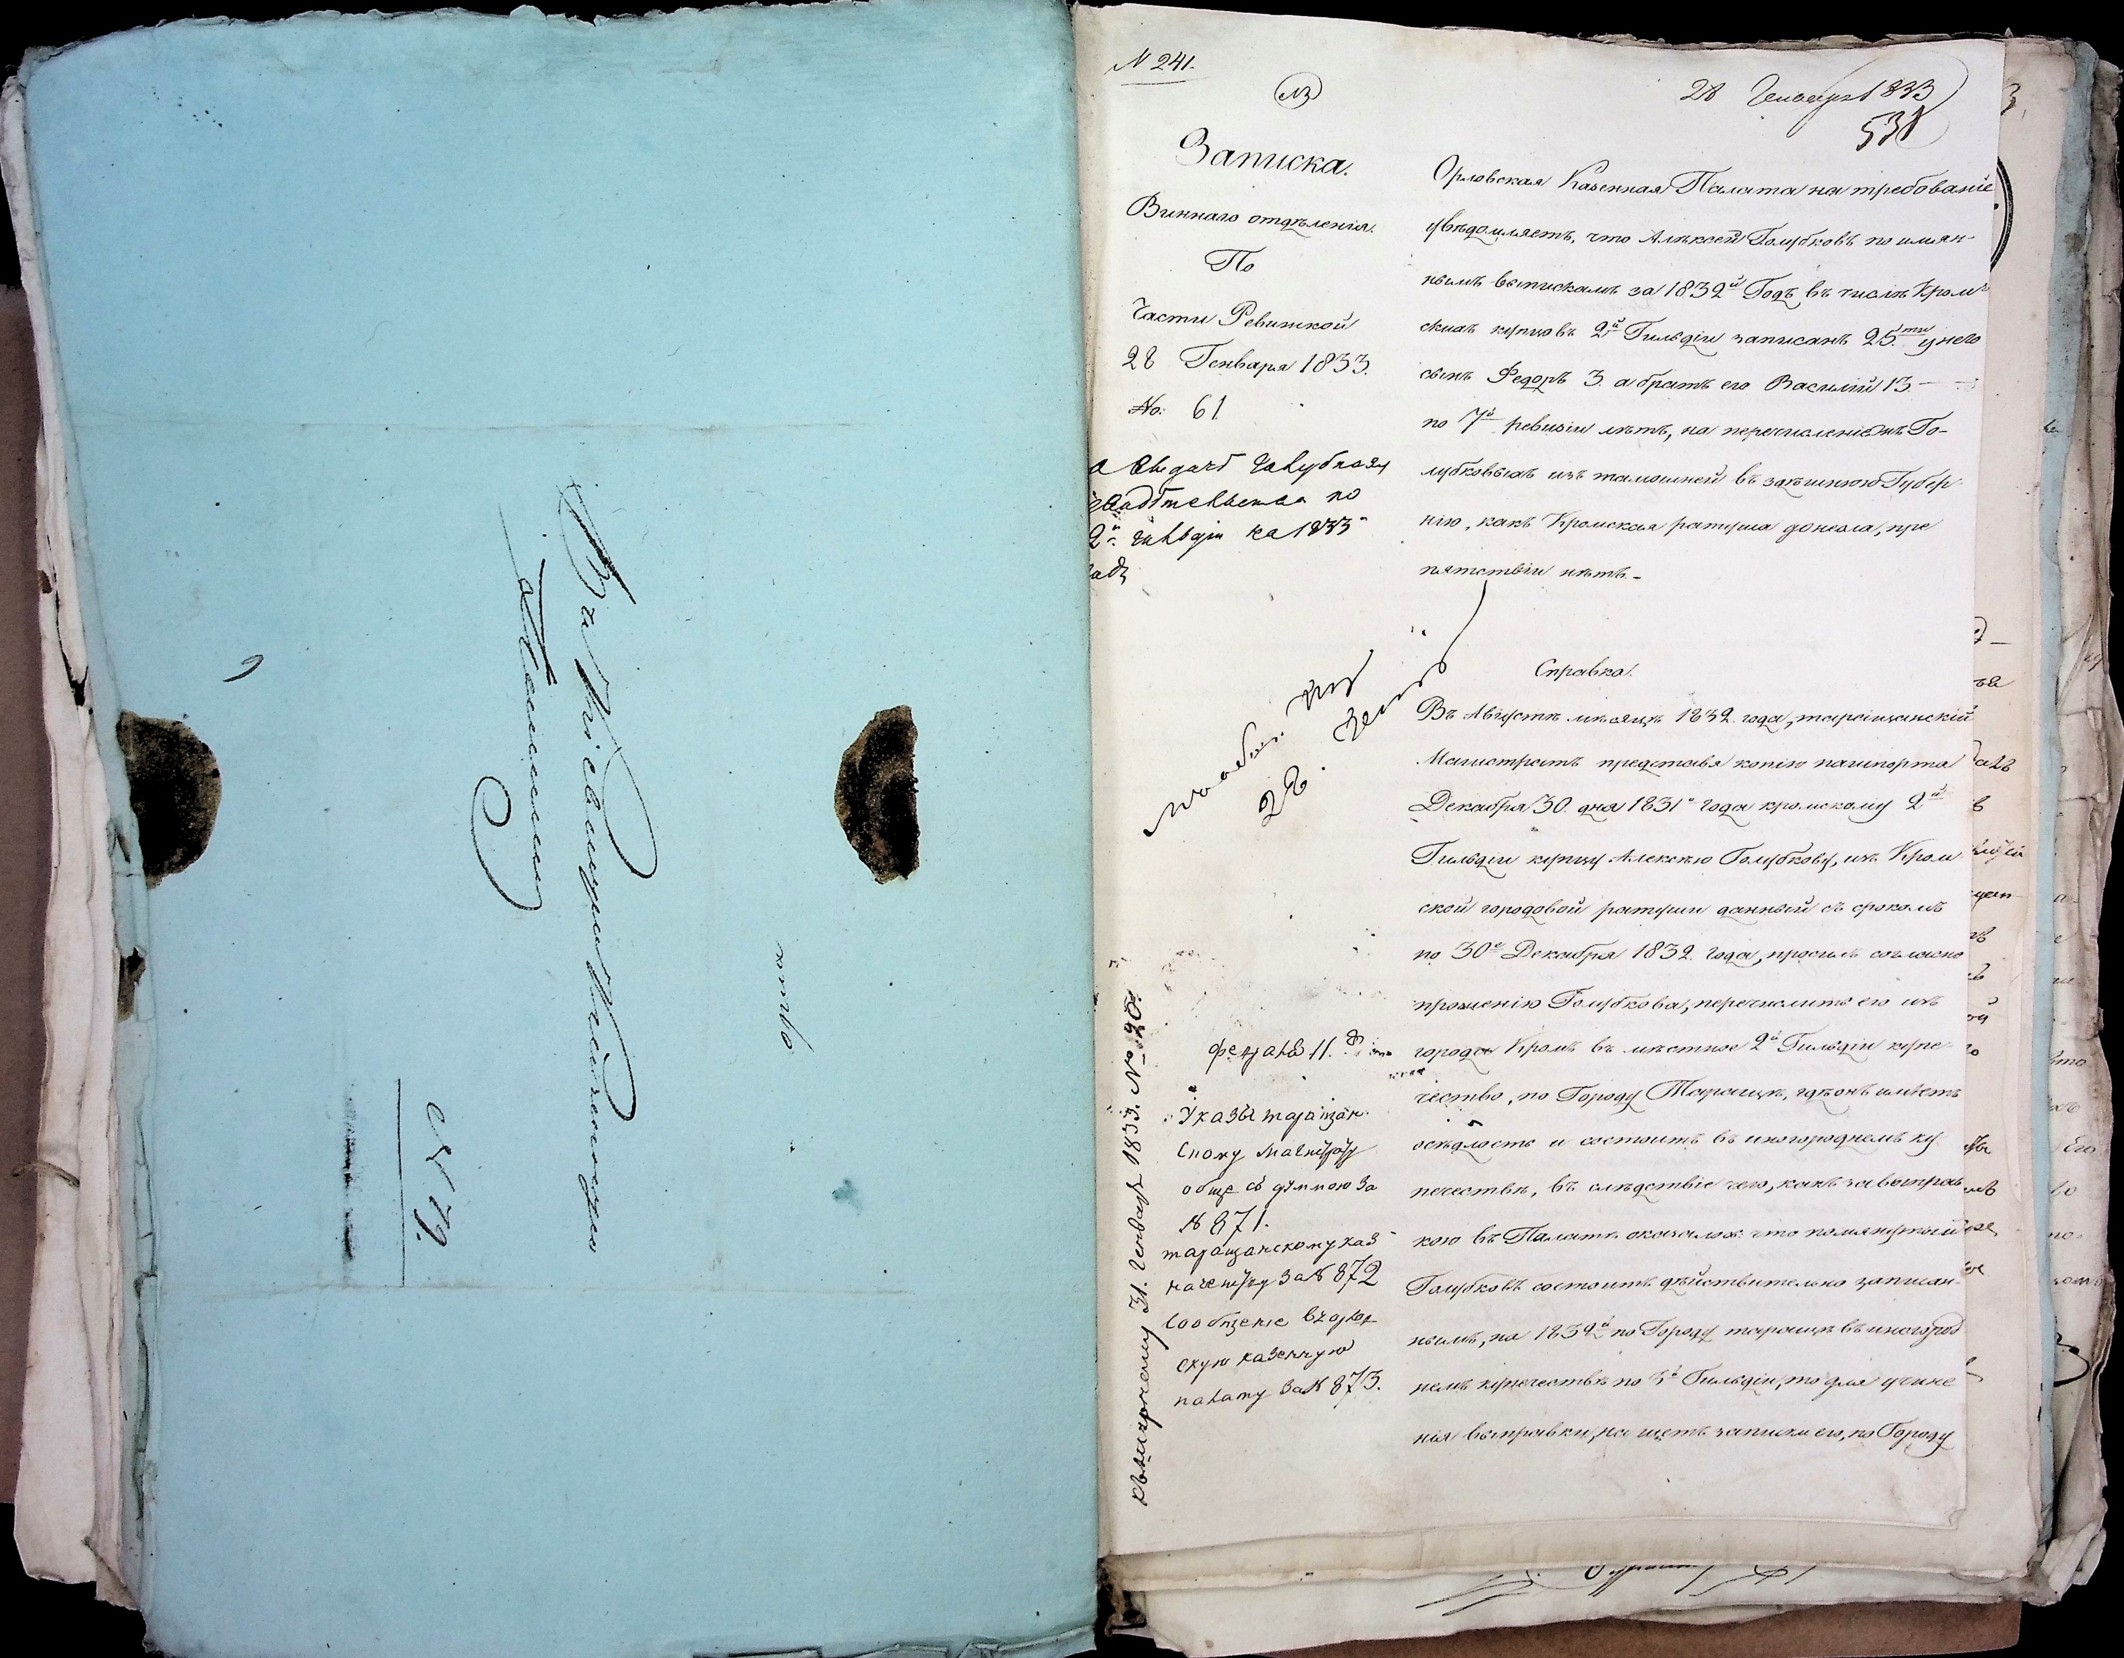 Въ Кіевскую Казенную
Палату
ото
№ 79.
N 241.
28 Генваря 1833
531
Записка.
Виннаго отдѣленія.
По
Части Ревизской
28 Генваря 1833.
No: 61
2й гильдіи на 1833й
годъ
Орловская Казенная Палата на требованіе
увѣдомляетъ, что Алексей Голубковъ по имян-
нымъ выпискамъ за 1832й Годъ въ числѣ Кром-
скихъ купцовъ 2й Гильдіи записанъ 25ти у него
сынъ Федоръ 3. а братъ его Василій 13
по 7й ревизіи лѣтъ, на перечисленіежъ Го-
лубковыхъ изъ тамошней въ здѣшнюю Губер
нію, какъ Кромская ратуша донесла, пре
пятствіи нѣтъ.
28.
Справка.
Въ Августѣ мѣсяцѣ 1832. года, таращанскій
Магистратъ представя копію пашпорта
Декабря 30. дня 1831го года кромскому 2й
Гильдіи купцу Алексѣю Голубкову, изъ Кром
ской городовой ратуши данный съ срокомъ
по 30е Декабря 1832. года, просилъ согласно
прошенію Голубкова, перечислить его изъ
города Кромъ въ мѣстное 2й Гильдіи купе-
чество, по Городу Таращѣ, гдѣ онъ имѣетъ
осѣдлость и состоитъ въ иногороднемъ ку
печествѣ, въ слѣдствіе чего, какъ за выправ
кою въ Палатѣ оказалось что помянутый
Голубковъ состоитъ дѣйствительно записан-
нымъ, на 1832й по Городу таращѣ въ иногород
немъ купечествѣ по 3й Гильдіи, то для учине
нія выправки, на щетъ записки его, по Городу
февраля 11.
Указы таращан-
скому Магистрату
обще съ думмою за
N 871.
таращанскому каз-
начейству за N 872
Сообщеніе въ орлов
скую казенную
палату за N 873.
31. Генваря 1833. No 20.